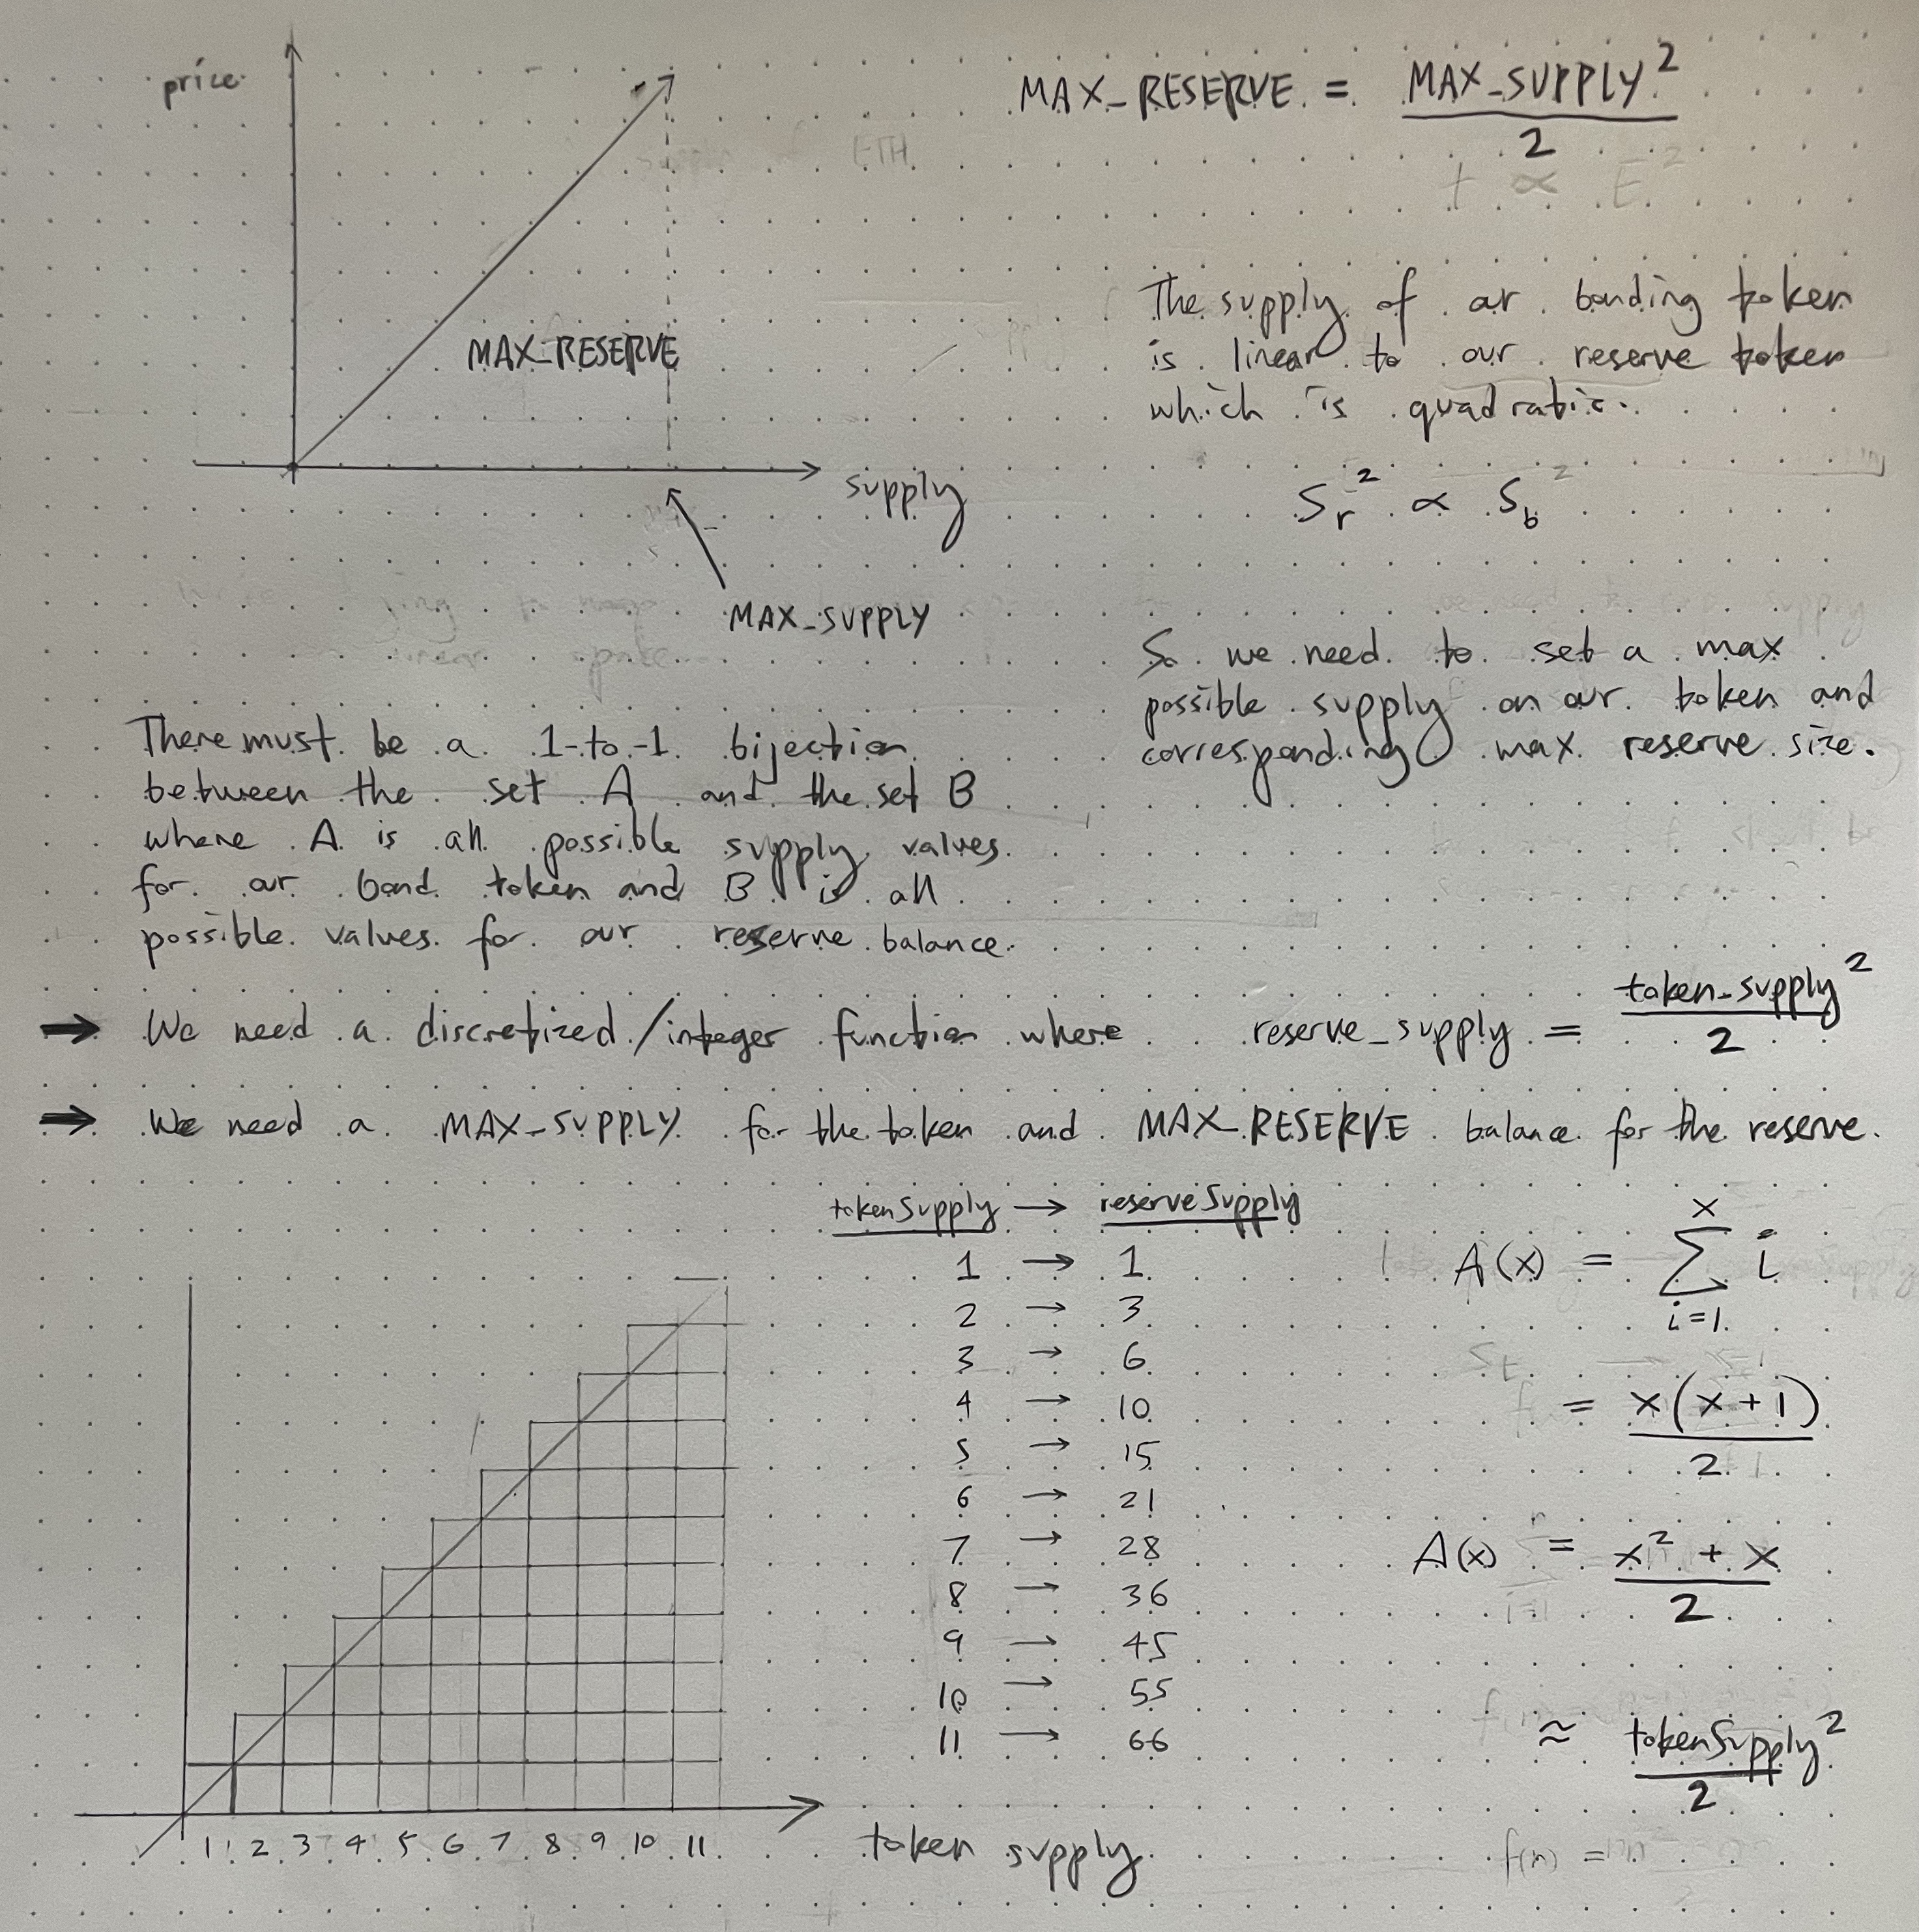 price
MAX_RESERVE
supply
MAX_SUPPLY
MAX_RESERVE = MAX_SUPPLY² / 2
ETH
t ∝ E²
The supply of our bonding token
is linear to our reserve token
which is quadratic.
S_r² ∝ S_b²
So we need to set a max
possible supply on our token and
corresponding max reserve size.
There must be a 1-to-1 bijection
between the set A and the set B
where A is all possible supply values
for our bond token and B is all
possible values for our reserve balance.
→ We need a discretized/integer function where reserve_supply = token_supply² / 2
→ We need a MAX_SUPPLY for the token and MAX_RESERVE balance for the reserve.
tokenSupply → reserveSupply
1 → 1
2 → 3
3 → 6
4 → 10
5 → 15
6 → 21
7 → 28
8 → 36
9 → 45
10 → 55
11 → 66
A(x) = Σ_{i=1}^{x} i
= x(x+1) / 2
A(x) = x² + x / 2
≈ tokenSupply² / 2
1 2 3 4 5 6 7 8 9 10 11
token supply
f(n) =